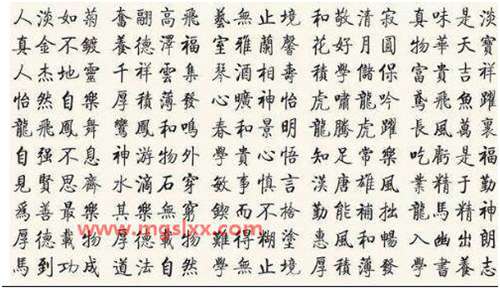 人淡如菊 奮翮高飛 藝無止境 和敬清寂 真味是淡
真金不鍍 養德澤福 室雅蘭馨 花好月圓 物華天寶
人杰地靈 千祥雲集 琴酒相壽 學儲保 富貴吉祥
怡然自樂 厚積薄發 心曠神怡 虎嘯龍吟 鳶飛魚躍
龍飛鳳舞 鸞鳳和鳴 春和景明 龍騰虎躍 長風萬裏
自强不息 神游物外 學貴心悟 知足常樂 吃虧是福
見賢思齊 水滴石穿 敏事慎言 漢唐雄風 業精于勤
爲善最樂 其樂無窮 鍥而不捨 勤能補拙 龍馬精神
www.mgslxx.com
厚德載物 物 難得糊塗 惠風和暢 入幽出朗
馬到功成 道法自然 學無止境 厚積薄發 學書養志